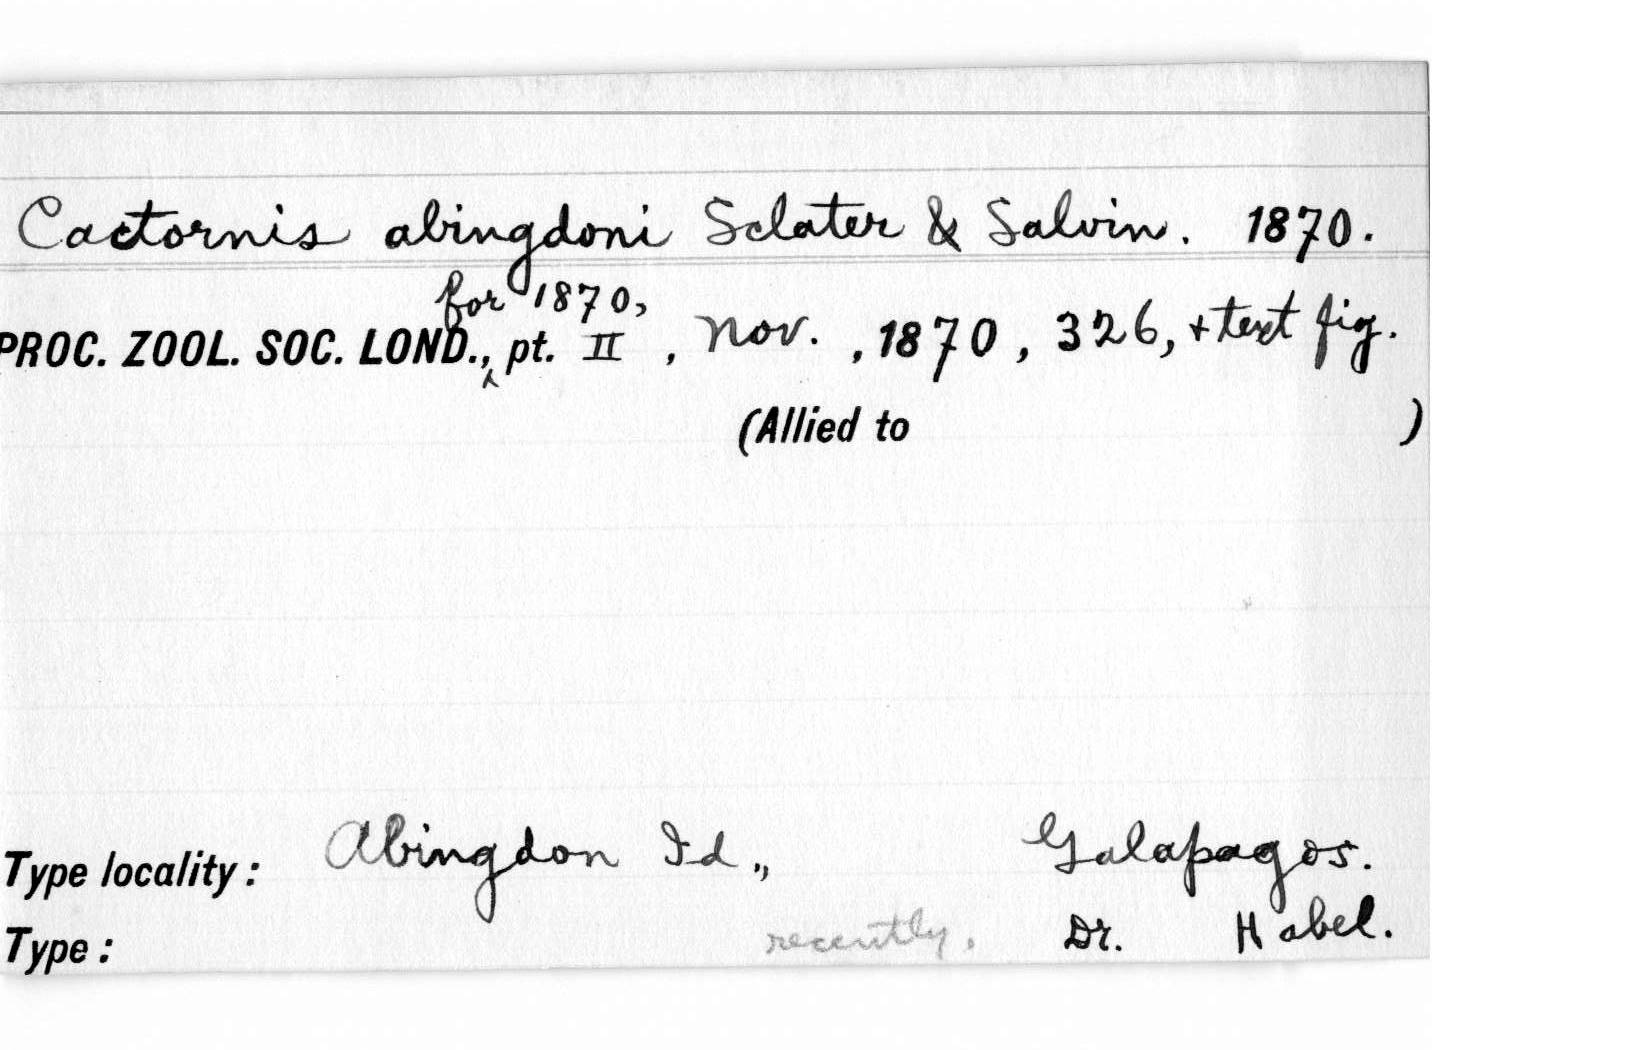 Cactornis abingdoni Sclater & Salvin. 1870.
for 1870,
PROC. ZOOL. SOC. LOND., pt. II, Nov., 1870, 326, + text fig.
(Allied to )
Type locality: Abingdon Id., Galapagos.
Type: recently. Dr. Habel.